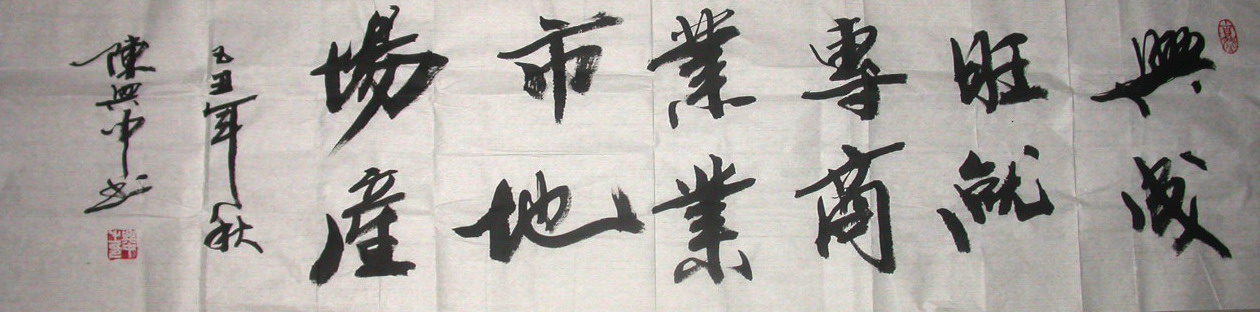 興旺專業市場
成就商業地産
己丑年秋
陳興中书